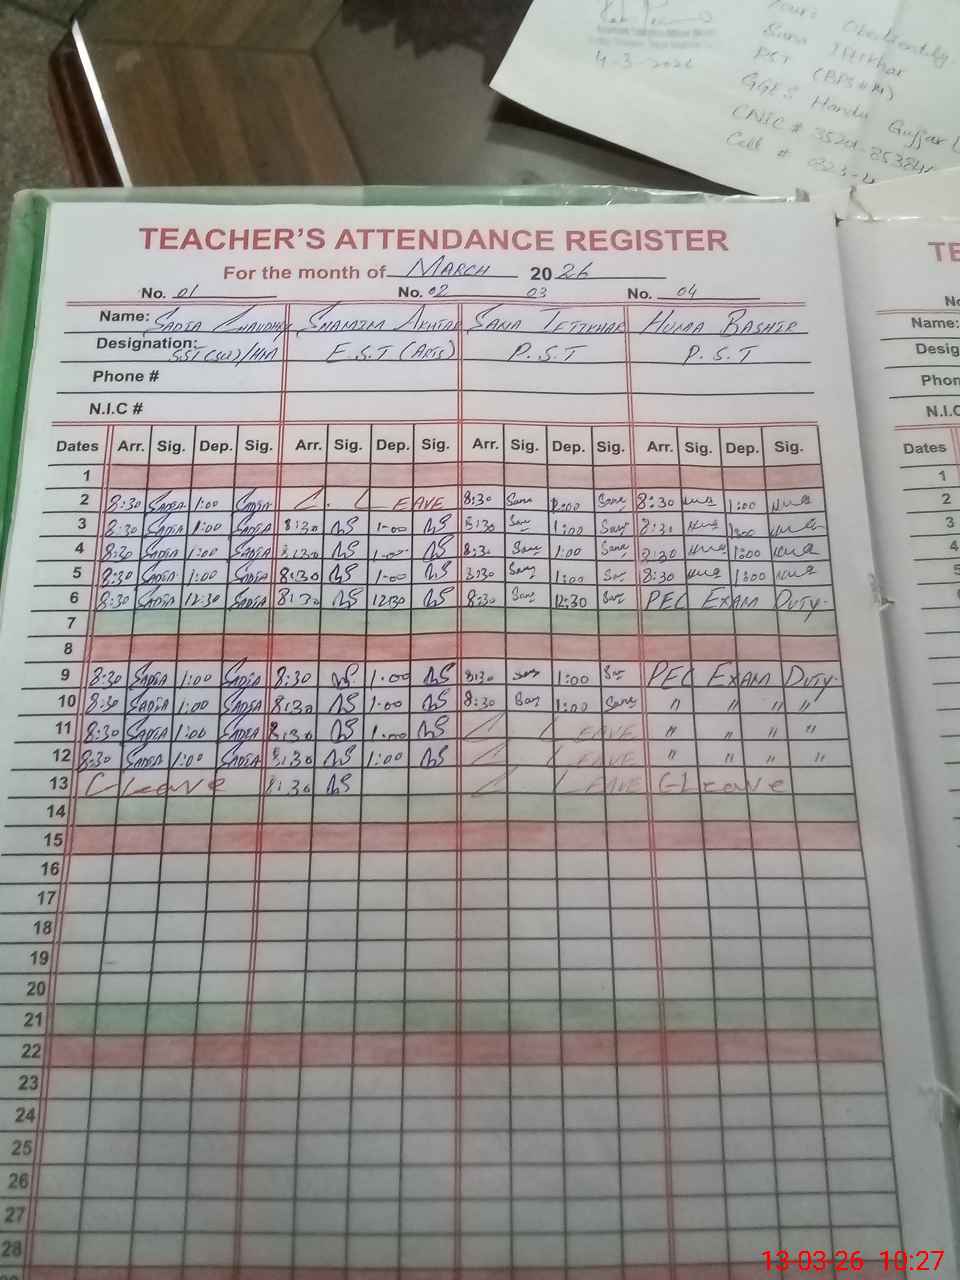 Yours Obediently
Sana Iftikhar
4-3-2026
PST (BPS#14)
GGES Handu Gujjar
CNIC # 3520
Cell # 0323-4
TEACHER'S ATTENDANCE REGISTER
For the month of MARCH 2026
No. 01 No. 02 03 No. 04
Name: SADIA CHAUDHRY SHAMIM AKHTAR SANA IFTIKHAR HUMA BASHIR
Designation: SST(Sci)/HM E.S.T (ARTS) P.S.T P.S.T
Phone #
N.I.C #
Dates Arr. Sig. Dep. Sig. Arr. Sig. Dep. Sig. Arr. Sig. Dep. Sig. Arr. Sig. Dep. Sig.
1
2 8:30 SADIA 1:00 SADIA C. LEAVE 8:30 Sana 1:00 Sana 8:30 Huma 1:00 Huma
3 8:30 SADIA 1:00 SADIA 8:30 1-00 8:30 Sana 1:00 Sana 8:30 Huma 1:00 Huma
4 8:30 SADIA 1:00 SADIA 8:30 1-00 8:30 Sana 1:00 Sana 8:30 Huma 1:00 Huma
5 8:30 SADIA 1:00 SADIA 8:30 1-00 8:30 Sana 1:00 Sana 8:30 Huma 1:00 Huma
6 8:30 SADIA 12:30 SADIA 8:30 12:30 8:30 Sana 12:30 Sana PEC EXAM DUTY.
7
8
9 8:30 SADIA 1:00 SADIA 8:30 1-00 8:30 Sana 1:00 Sana PEC EXAM DUTY.
10 8:30 SADIA 1:00 SADIA 8:30 1-00 8:30 Sana 1:00 Sana " " " "
11 8:30 SADIA 1:00 SADIA 8:30 1-00 C LEAVE " " " "
12 8:30 SADIA 1:00 SADIA 8:30 1:00 C LEAVE " " " "
13 C-Leave 8:30 C LEAVE C-Leave
14
15
16
17
18
19
20
21
22
23
24
25
26
27
28
TE
No
Name:
Desig
Phon
N.I.C
Dates
1
2
3
4
5
13-03-26 10:27